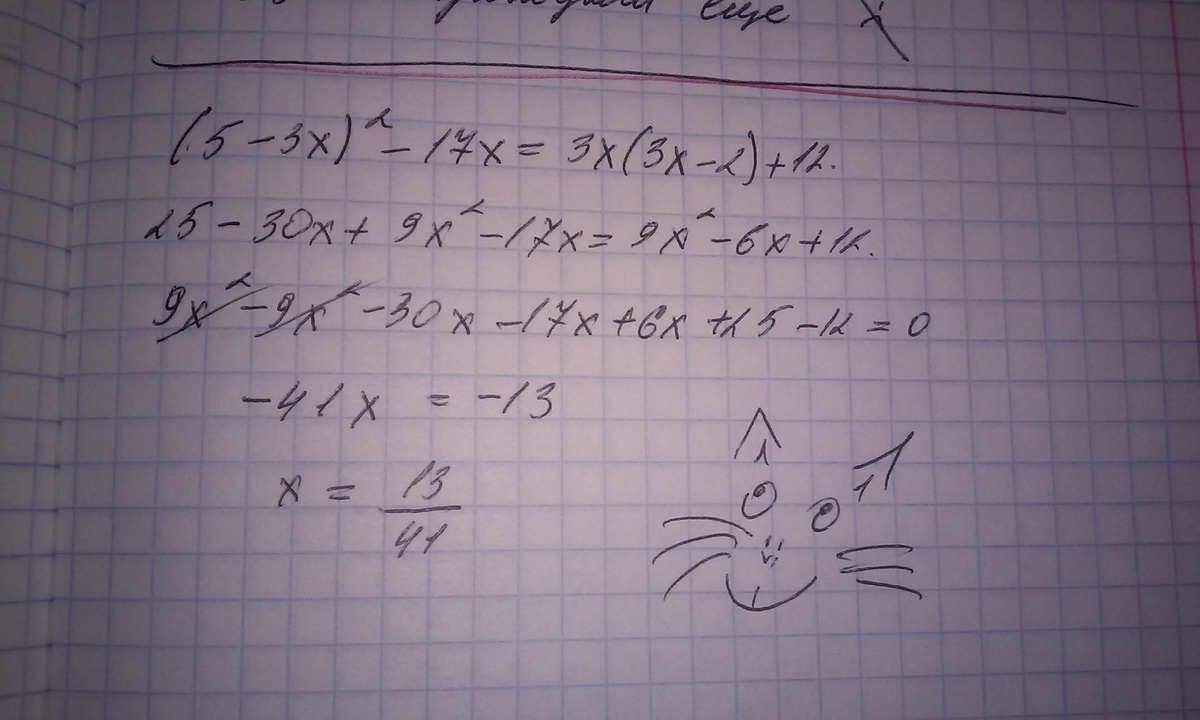 еще
(5-3x)² - 17x = 3x(3x-2)+12.
25 - 30x + 9x² - 17x = 9x² - 6x + 12.
9x² - 9x² - 30x - 17x + 6x + 25 - 12 = 0
-41x = -13
x = 13/41